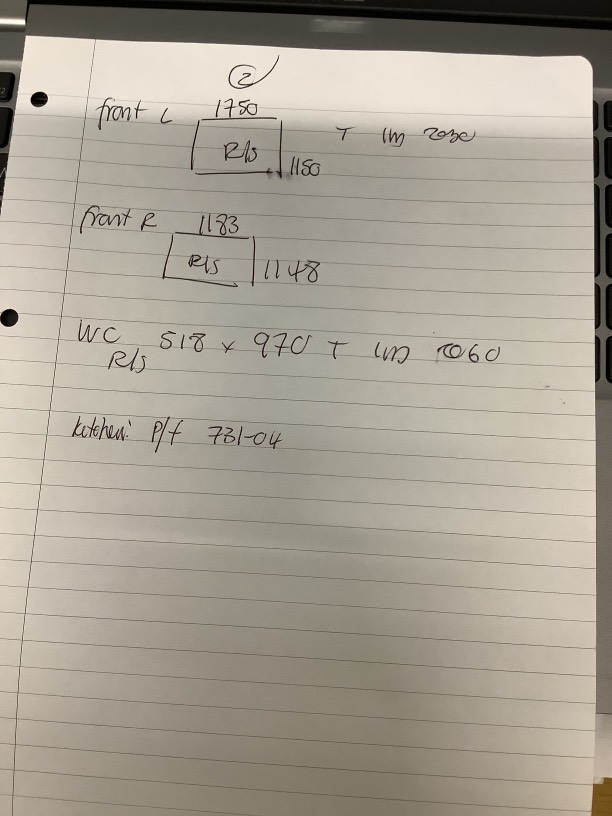 2
front L 1750
R/s 1150 T
front R 1183
R/s 1148
WC 518 x 970 T
R/s
kitchen: P/f 731-04